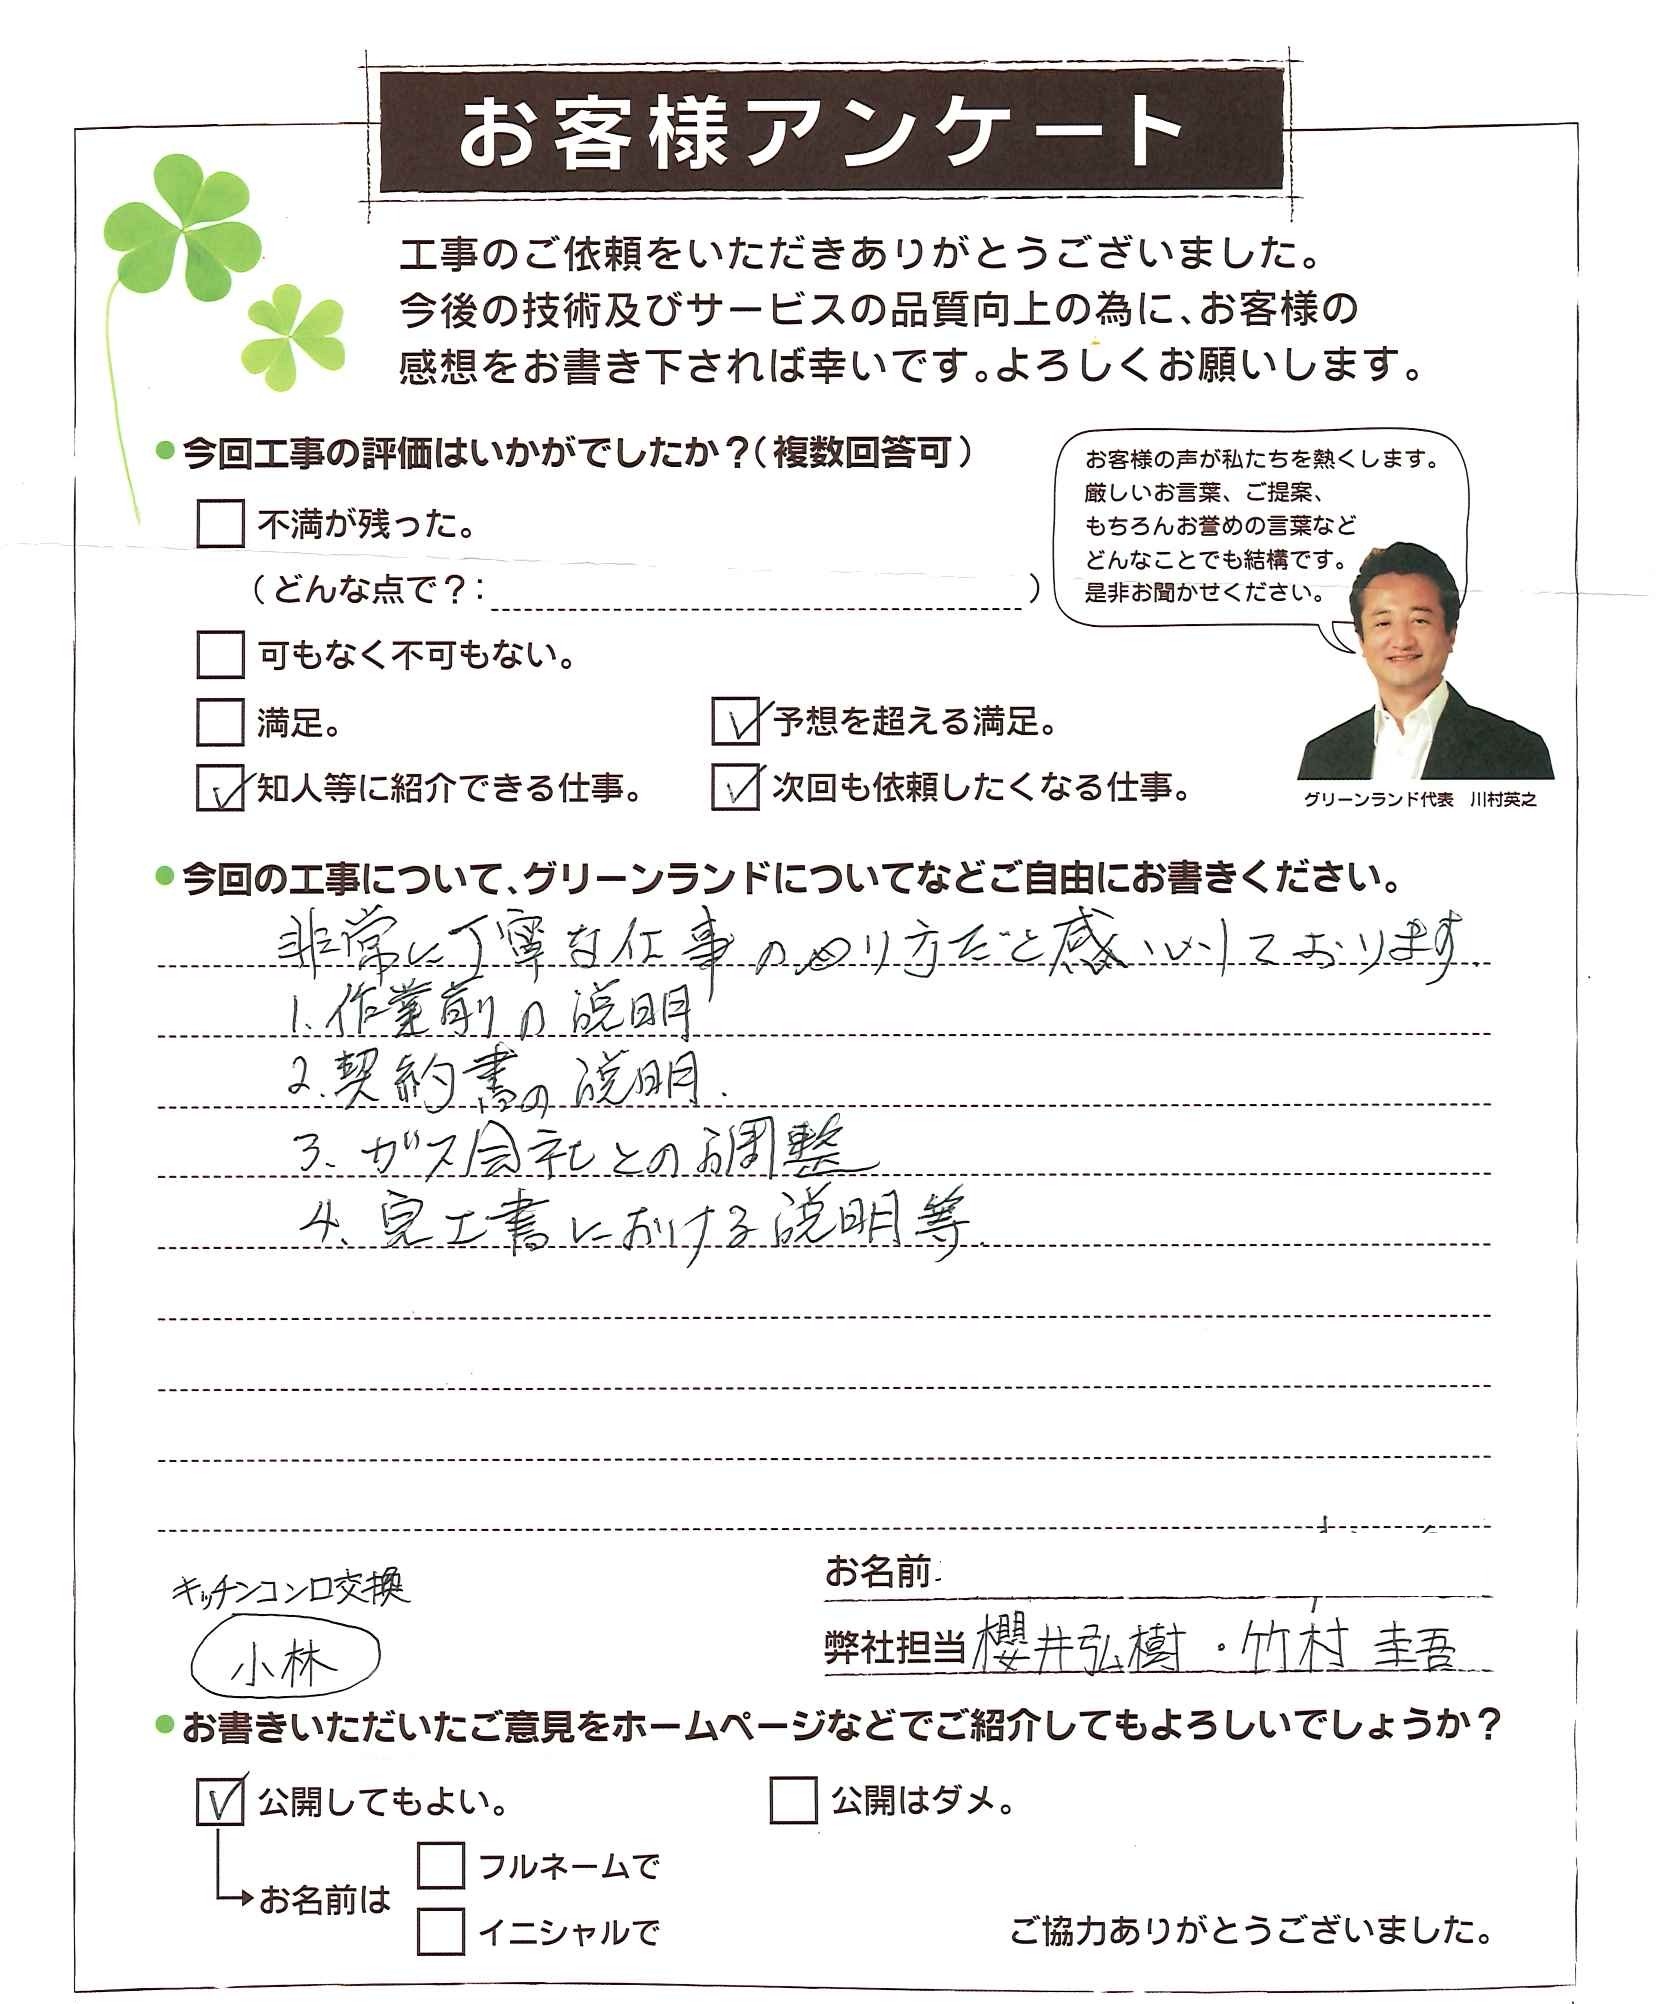 お客様アンケート
工事のご依頼をいただきありがとうございました。
今後の技術及びサービスの品質向上の為に、お客様の
感想をお書き下されば幸いです。よろしくお願いします。
●今回工事の評価はいかがでしたか？（複数回答可）
お客様の声が私たちを熱くします。
厳しいお言葉、ご提案、
もちろんお誉めの言葉など
どんなことでも結構です。
是非お聞かせください。
不満が残った。
（どんな点で？： ）
可もなく不可もない。
満足。
予想を超える満足。
知人等に紹介できる仕事。
次回も依頼したくなる仕事。
グリーンランド代表 川村英之
●今回の工事について、グリーンランドについてなどご自由にお書きください。
非常に丁寧な仕事のやり方だと感心しております。
1. 作業前の説明
2. 契約書の説明.
3. ガス会社との調整
4. 完工書における説明等.
キッチンコンロ交換
小林
お名前
弊社担当 櫻井弘樹・竹村 圭吾
●お書きいただいたご意見をホームページなどでご紹介してもよろしいでしょうか？
公開してもよい。
公開はダメ。
お名前は
フルネームで
イニシャルで
ご協力ありがとうございました。